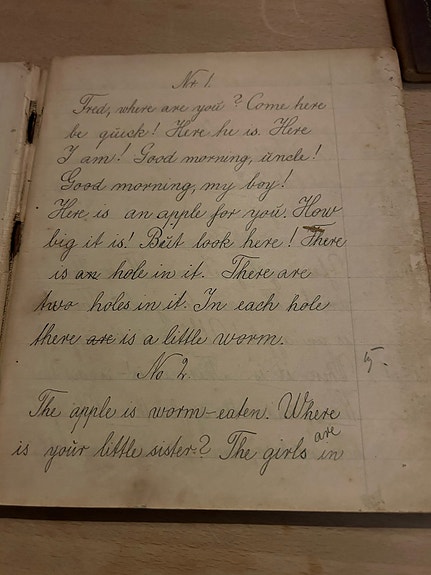 Nr 1.
Fred, where are you? Come here
be quick! Here he is. Here
I am! Good morning, uncle!
Good morning, my boy!
Here is an apple for you. How
big it is! But look here! There
is an hole in it. There are
two holes in it. In each hole
there are is a little worm.
No 2
5.
The apple is worm-eaten. Where
is your little sister? The girls are in